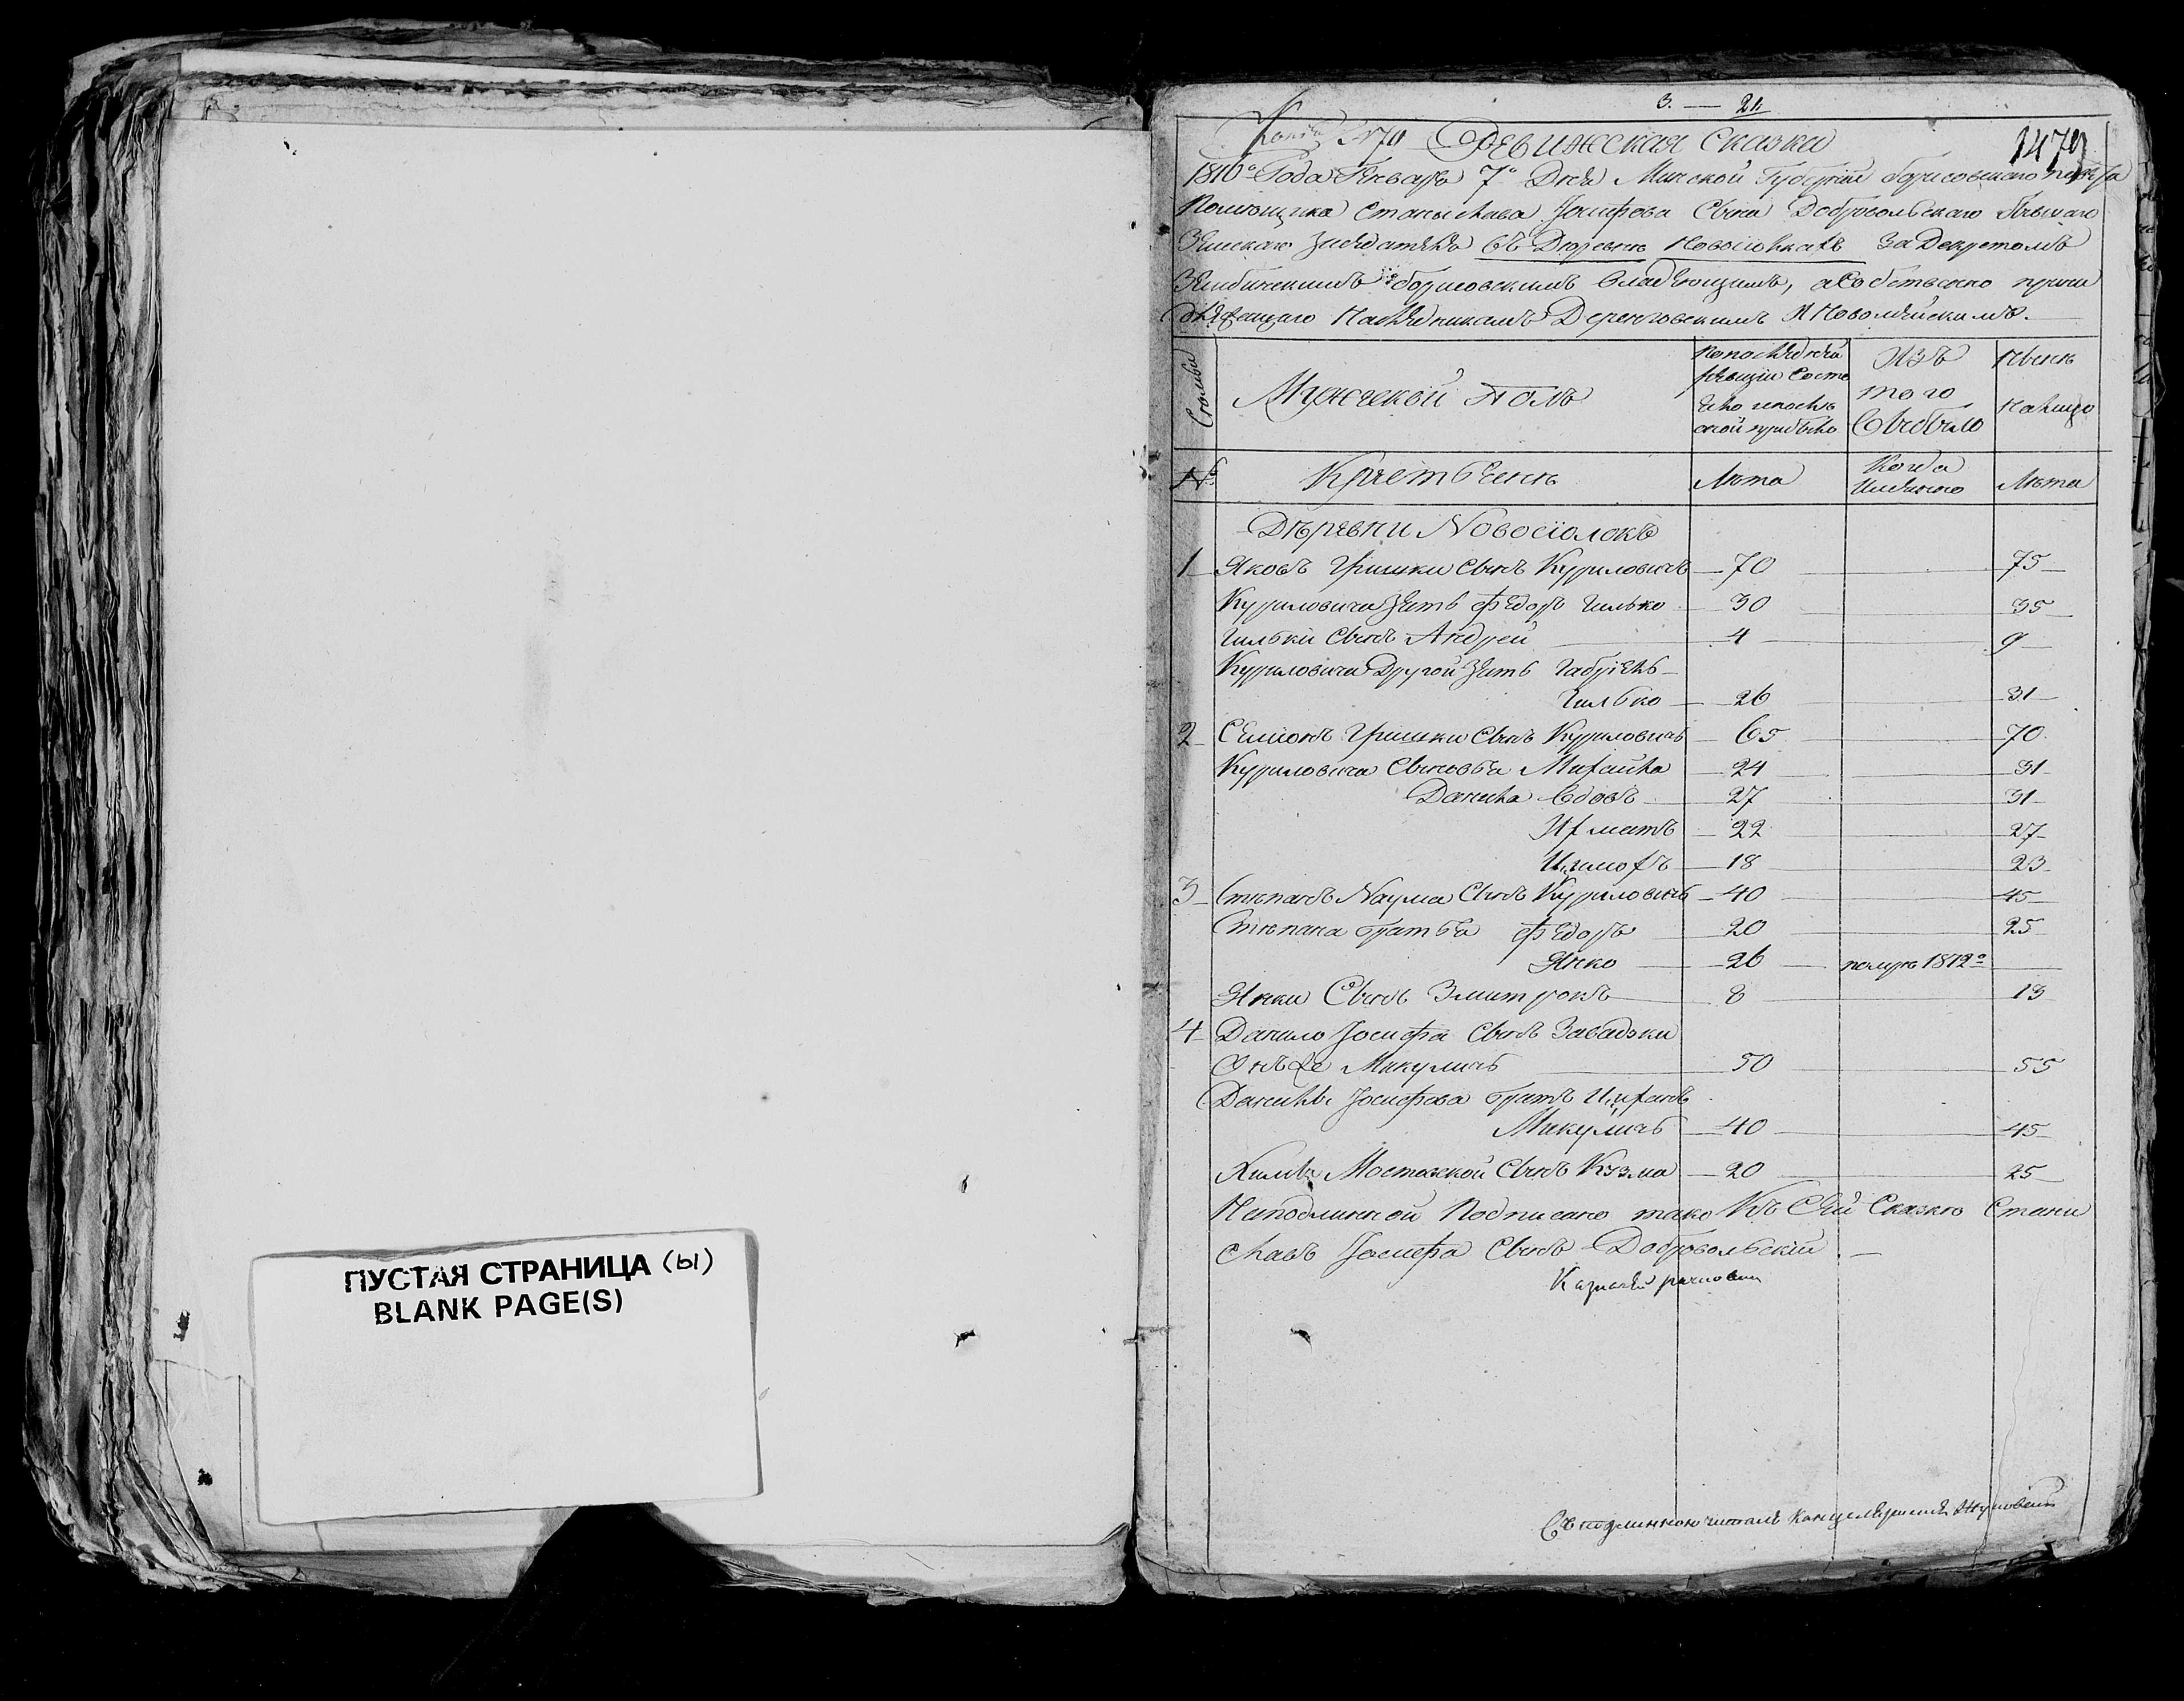 ПУСТАЯ СТРАНИЦА (ы)
BLANK PAGE(S)
3. — 21.
Копія №70 Ревижская Сказка 1479
1816го Года Генваря 7го Дня Минской Губерніи Борисовского повета
Помещика Станыслава Іосифова Сына Добровольскаго бывшаго
Земскаго Заседателя въ Деревне Новосіолкахъ За Декретомъ
Зембинскимъ Борисовскимъ владеющимъ, а Собственно прина
длежащаго Наследникамъ Деренговскимъ и Новомейскимъ.
Мужеской Полъ
по последней
ревизіи Состо
яло и после
оной прибыло
Изъ
того
Выбыло
Ныне
налицо
№
Крестьяне
Лета
Когда
Именно
Лета
Деревни Новосіолокъ
1 Яковъ Гришки Сынъ Куриловичъ 70 75
Куриловича Зять Федоръ Гилько 30 35
Гильки Сынъ Андрей 4 9
Куриловича Другой Зять Габріель
Гилько 26 31
2 Семіонъ Гришки Сынъ Куриловичъ 65 70
Куриловича Сыновья Михайла 24 31
Данила Вдовъ 27 31
Игнатъ 22 27
Цимохъ 18 23
3 Степанъ Наума Сынъ Куриловичъ 40 45
Степана братья Федоръ 20 25
Янко 26 помре 1812го
Янки Сынъ Змитрокъ 8 13
4 Данило Іосифа Сынъ Завадзки
Онъ же Микуличъ 50 55
Данилы Іосифова братъ
Микуличъ 40 45
Мостовской Сынъ Кузма 20 25
На подлинной Подписано тако Къ Сей Сказке Стани
славъ Іосифа Сынъ Добровольскій.
Казначей
Съ подлинною читалъ Канцеляристъ